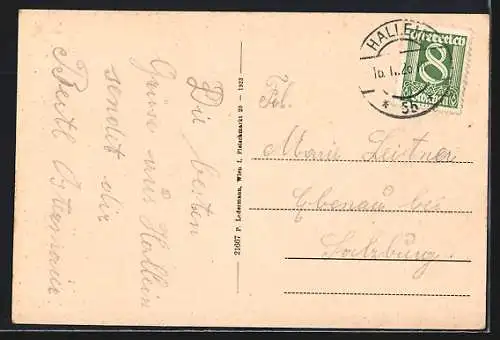 Die besten
Grüsse aus Hallein
sendet dir
Bertl
21667 P. Ledermann, Wien I, Fleischmarkt 20 - 1925
HALLEIN
16. I. 26
* 5b
Österreich
8
Groschen
Frl.
Marie Leitner
Ebenau bei
Salzburg.